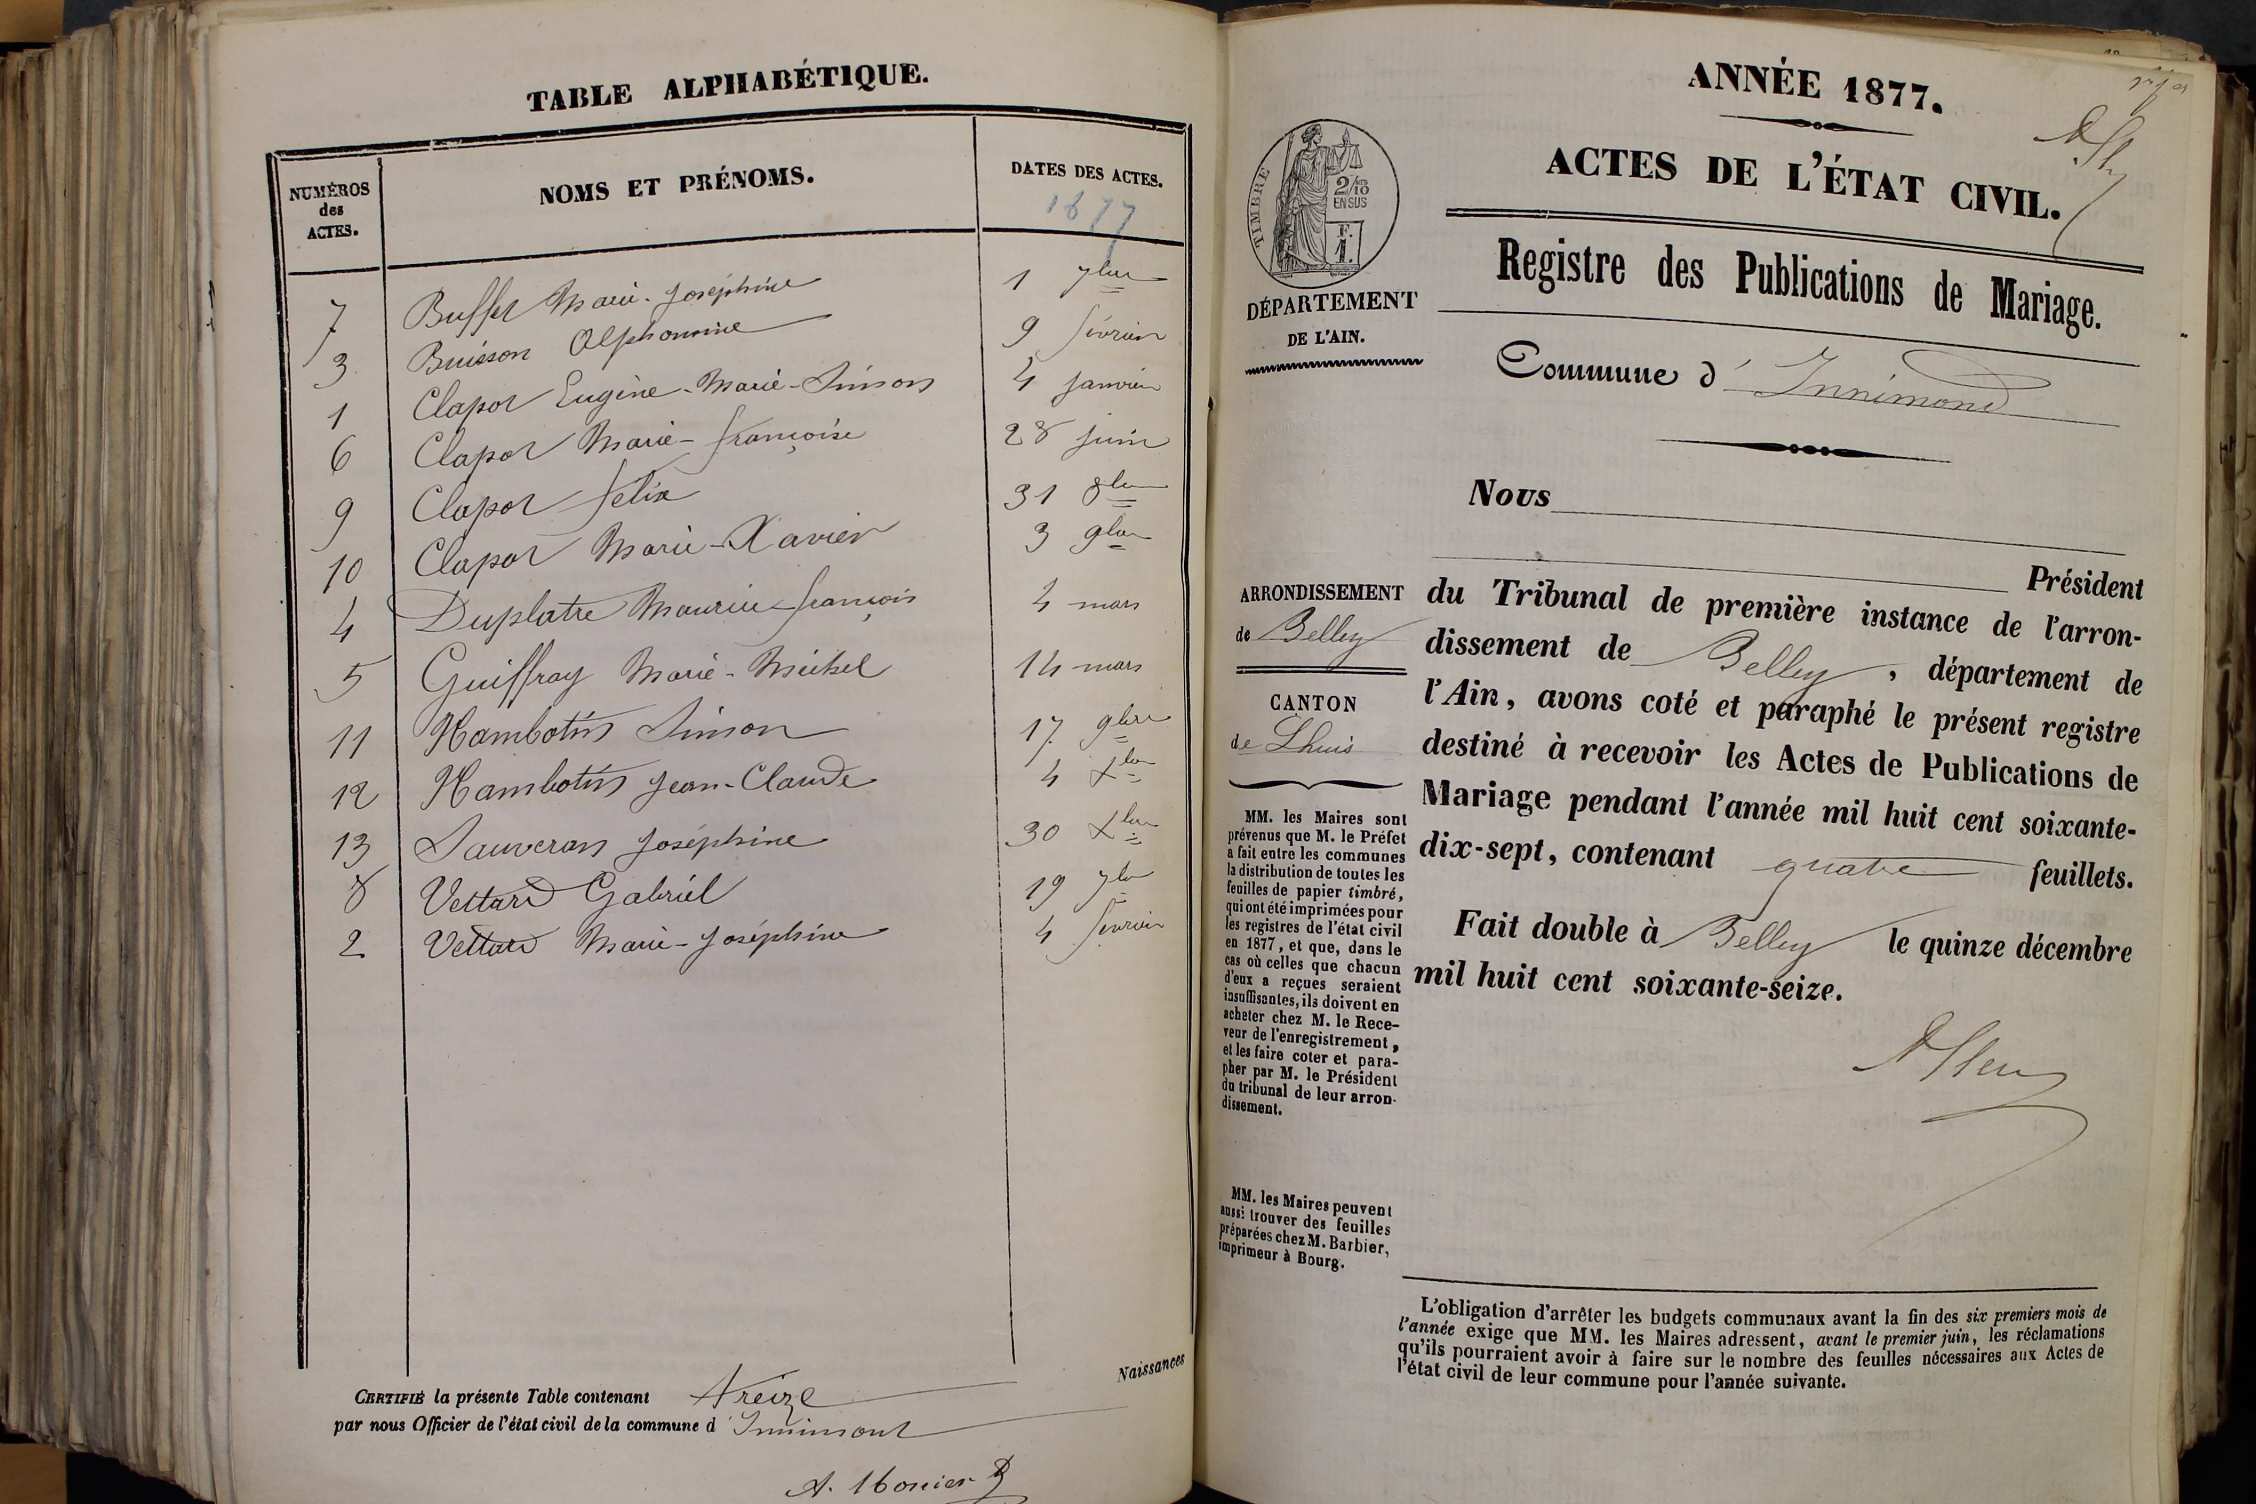 TABLE ALPHABÉTIQUE.
NUMÉROS des ACTES. NOMS ET PRÉNOMS. DATES DES ACTES.
1877
7 Buffet Marie-Joséphine 1 7bre
3 Buisson Alphonsine 9 février
1 Clapot Eugène-Marie-Simon 4 janvier
6 Clapot Marie-françoise 28 juin
9 Clapot félix 31 8bre
10 Clapot Marie-Xavier 3 9bre
4 Duplatre Maurice-françois 4 mars
5 Guiffray Marie-Michel 14 mars
11 Hambotin Simon 17 9bre
12 Hambotin Jean-Claude 4 Xbre
13 Sauveron Joséphine 30 Xbre
8 Vettard Gabriel 19 7bre
2 Vettard Marie-Joséphine 4 février
Naissances
CERTIFIÉ la présente Table contenant treize
par nous Officier de l'état civil de la commune d'Innimont
A. Monier
ANNÉE 1877.
ACTES DE L'ÉTAT CIVIL.
TIMBRE
2/10
EN SUS
F.
1.
DÉPARTEMENT
DE L'AIN.
Registre des Publications de Mariage.
Commune d'Innimond
Nous
Président
ARRONDISSEMENT
de Belley
CANTON
de Lhuis
du Tribunal de première instance de l'arron-
dissement de Belley, département de
l'Ain, avons coté et paraphé le présent registre
destiné à recevoir les Actes de Publications de
Mariage pendant l'année mil huit cent soixante-
dix-sept, contenant quatre feuillets.
Fait double à Belley le quinze décembre
mil huit cent soixante-seize.
MM. les Maires sont
prévenus que M. le Préfet
a fait entre les communes
la distribution de toutes les
feuilles de papier timbré,
qui ont été imprimées pour
les registres de l'état civil
en 1877, et que, dans le
cas où celles que chacun
d'eux a reçues seraient
insuffisantes, ils doivent en
acheter chez M. le Rece-
veur de l'enregistrement,
et les faire coter et para-
pher par M. le Président
du tribunal de leur arron-
dissement.
MM. les Maires peuvent
aussi trouver des feuilles
préparées chez M. Barbier,
imprimeur à Bourg.
L'obligation d'arrêter les budgets communaux avant la fin des six premiers mois de
l'année exige que MM. les Maires adressent, avant le premier juin, les réclamations
qu'ils pourraient avoir à faire sur le nombre des feuilles nécessaires aux Actes de
l'état civil de leur commune pour l'année suivante.